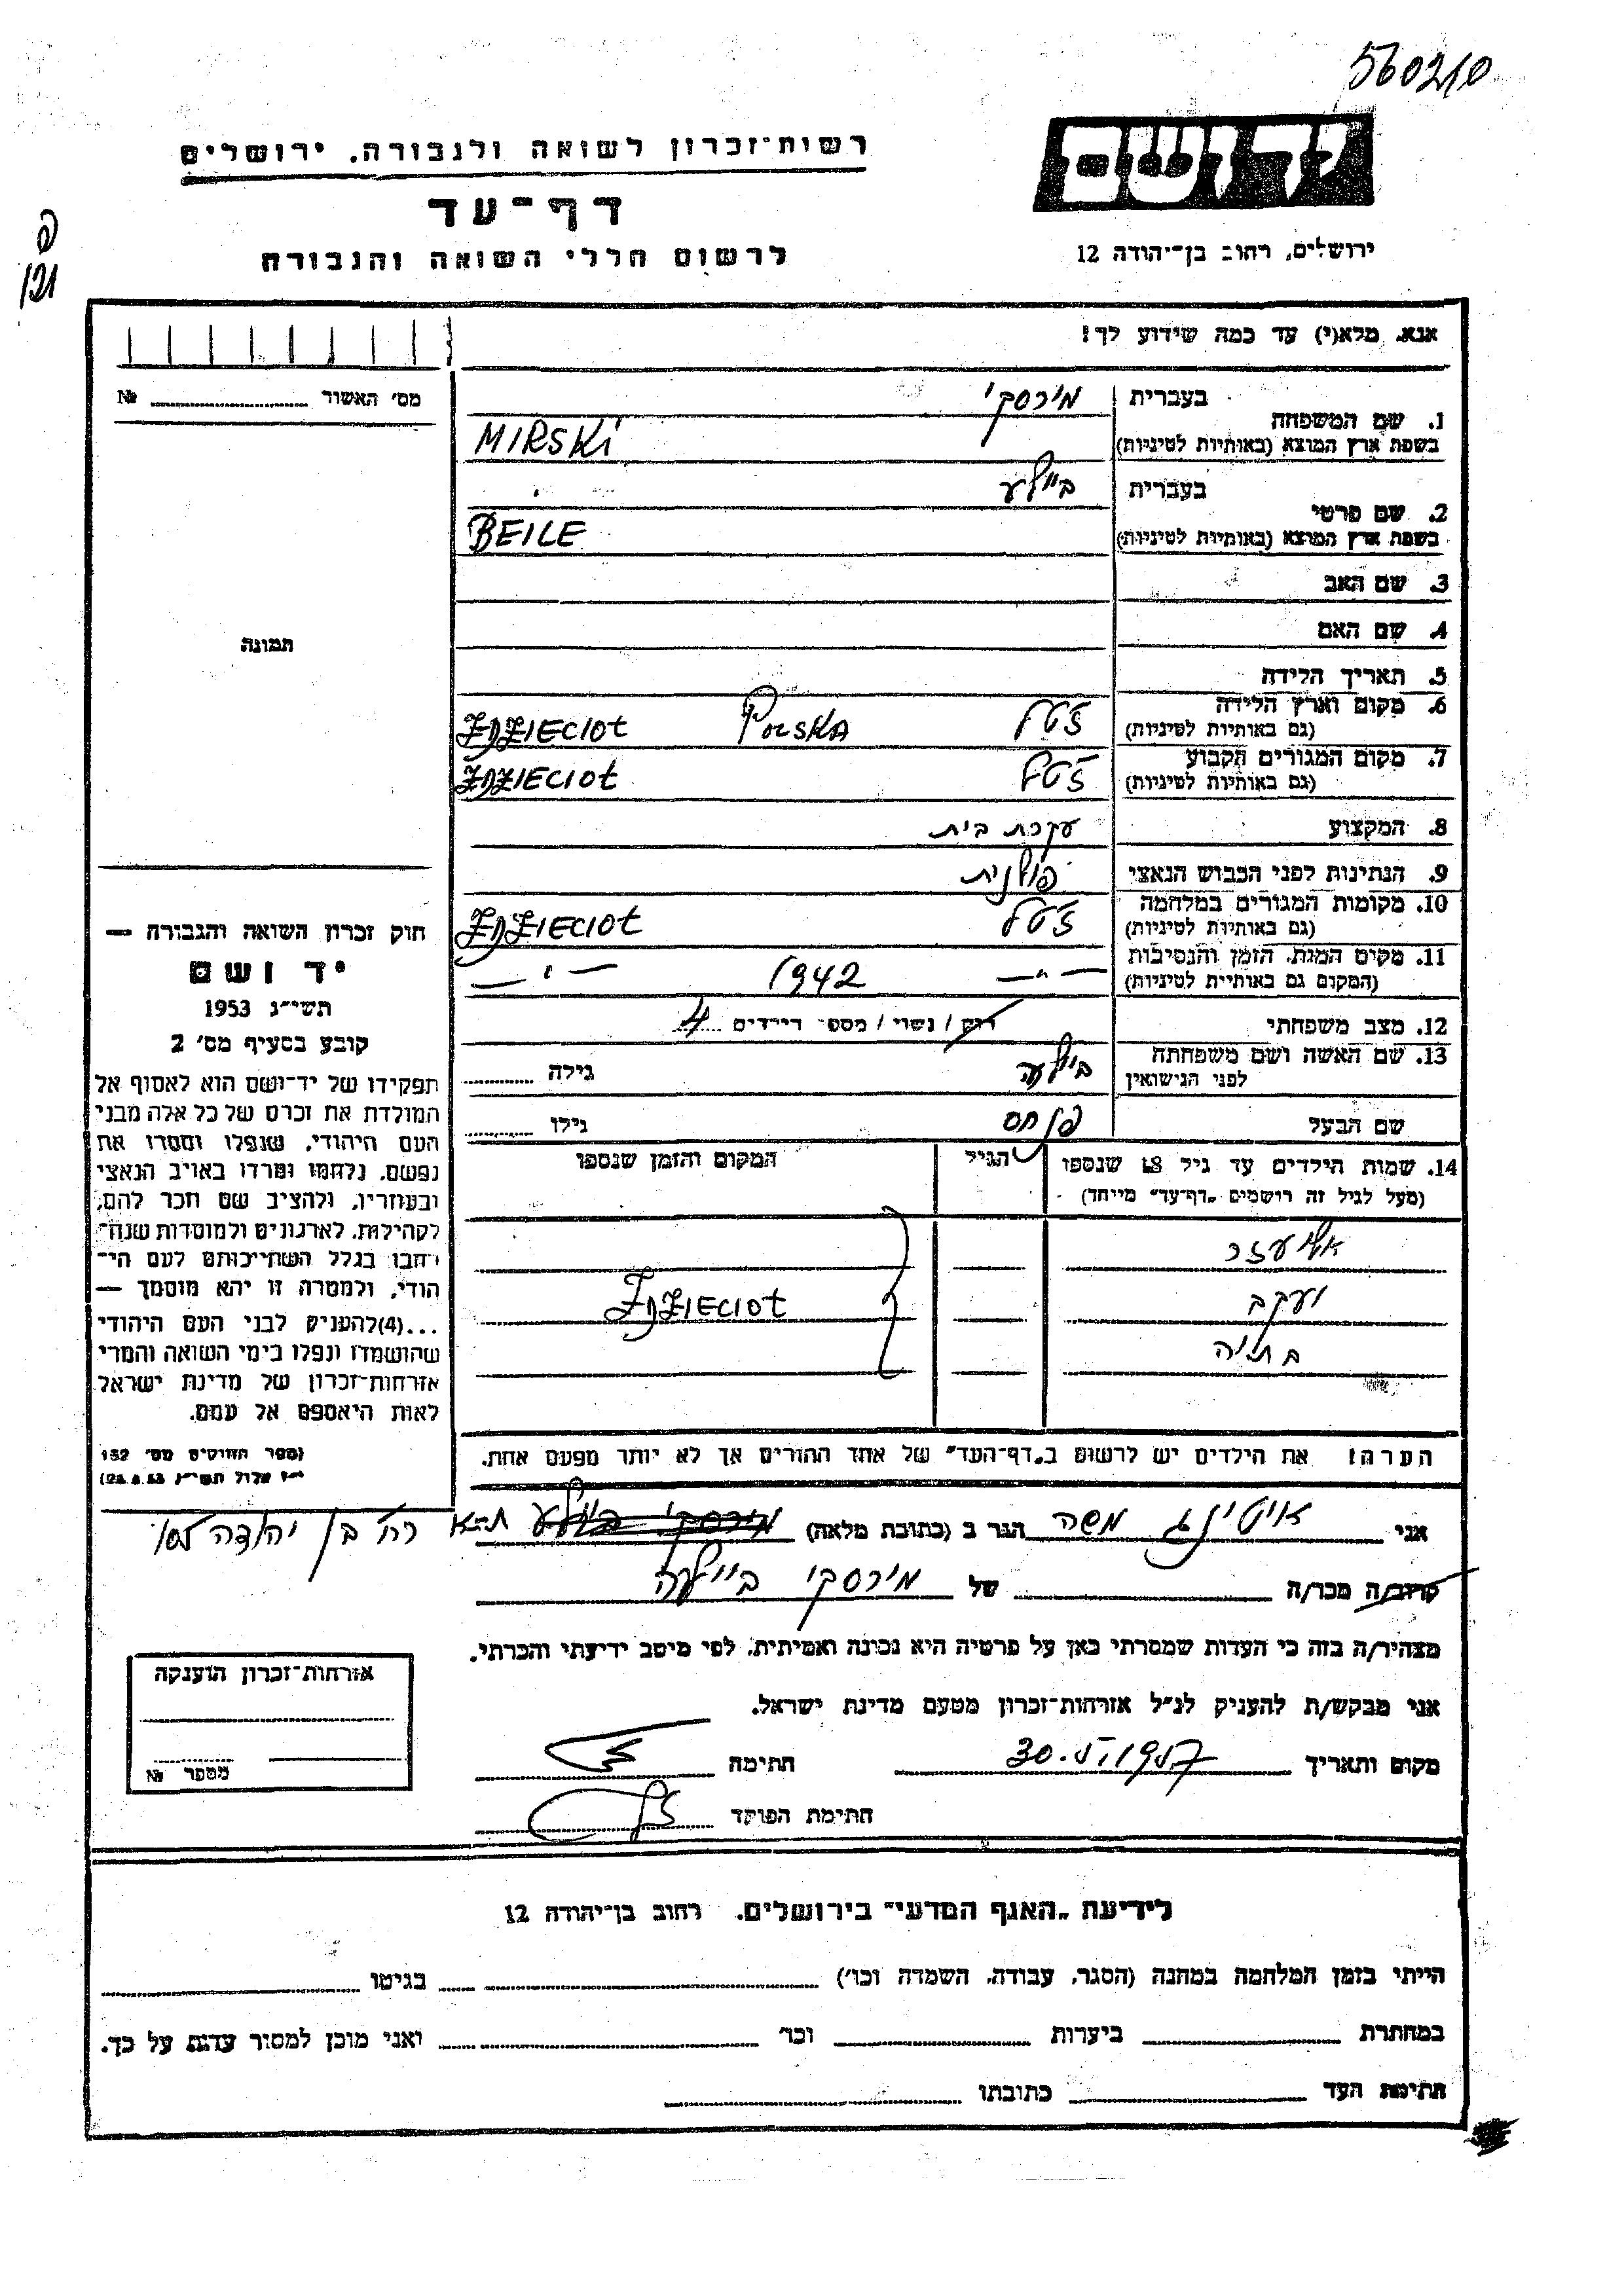 560210
רשות־זכרון לשואה ולגבורה, ירושלים
יד ושם
דף־עד
לרשום חללי השואה והגבורה
ירושלים, רחוב בן־יהודה 12
פ
121
אנא, מלא(י) עד כמה שידוע לך!
מס׳ האשור № 
1. שם המשפחה
בעברית מירסקי
בשפת ארץ המוצא (באותיות לטיניות) MIRSKI
2. שם פרטי
בעברית ביילע
בשפת ארץ המוצא (באותיות לטיניות) BEILE
3. שם האב
4. שם האם
תמונה
5. תאריך הלידה
6. מקום וארץ הלידה
(גם באותיות לטיניות) זטל POLSKA ZDZIECIOŁ
7. מקום המגורים הקבוע
(גם באותיות לטיניות) זטל ZDZIECIOŁ
8. המקצוע עקרת בית
9. הנתינות לפני הכבוש הנאצי פולנית
10. מקומות המגורים במלחמה
(גם באותיות לטיניות) זטל ZDZIECIOŁ
11. מקום המות, הזמן והנסיבות
(המקום גם באותיות לטיניות) — " — 1942 — " —
12. מצב משפחתי רוק / נשוי / מספר הילדים 4
13. שם האשה ושם משפחתה
לפני הנישואין ביילע גילה
שם הבעל פנחס גילו
14. שמות הילדים עד גיל 18 שנספו
(מעל לגיל זה רושמים „דף־עד" מייחד)
הגיל
המקום והזמן שנספו
אליעזר
יעקב ZDZIECIOŁ
בתיה
הערה: את הילדים יש לרשום ב„דף־העד" של אחד ההורים אך לא יותר מפעם אחת.
חוק זכרון השואה והגבורה —
יד ושם
תשי״ג 1953
קובע בסעיף מס׳ 2
תפקידו של יד־ושם הוא לאסוף אל
המולדת את זכרם של כל אלה מבני
העם היהודי, שנפלו ומסרו את
נפשם, נלחמו ומרדו באויב הנאצי
ובעוזריו, ולהציב שם וזכר להם,
לקהילות, לארגונים ולמוסדות שנח־
רבו בגלל השתייכותם לעם הי־
הודי, ולמטרה זו יהא מוסמך —
...(4)להעניק לבני העם היהודי
שהושמדו ונפלו בימי השואה והמרי
אזרחות־זכרון של מדינת ישראל
לאות היאספם אל עמם.
(ספר החוקים מס׳ 132
י״ז אלול תשי״ג 28.8.53)
אני משה הגר ב (כתובת מלאה) ת-א רח׳ בן יהודה
קרוב/ה מכר/ה של מירסקי ביילע
מצהיר/ה בזה כי העדות שמסרתי כאן על פרטיה היא נכונה ואמיתית, לפי מיטב ידיעתי והכרתי.
אני מבקש/ת להעניק לנ״ל אזרחות־זכרון מטעם מדינת ישראל.
מקום ותאריך 30.VI.1957 חתימה
חתימת הפוקד
אזרחות־זכרון הוענקה
מספר №
לידיעת „האגף המדעי" בירושלים, רחוב בן־יהודה 12
הייתי בזמן המלחמה במחנה (הסגר, עבודה, השמדה וכו׳) בגיטו
במחתרת ביערות וכו׳ ואני מוכן למסור עדות על כך.
חתימת העד כתובתו